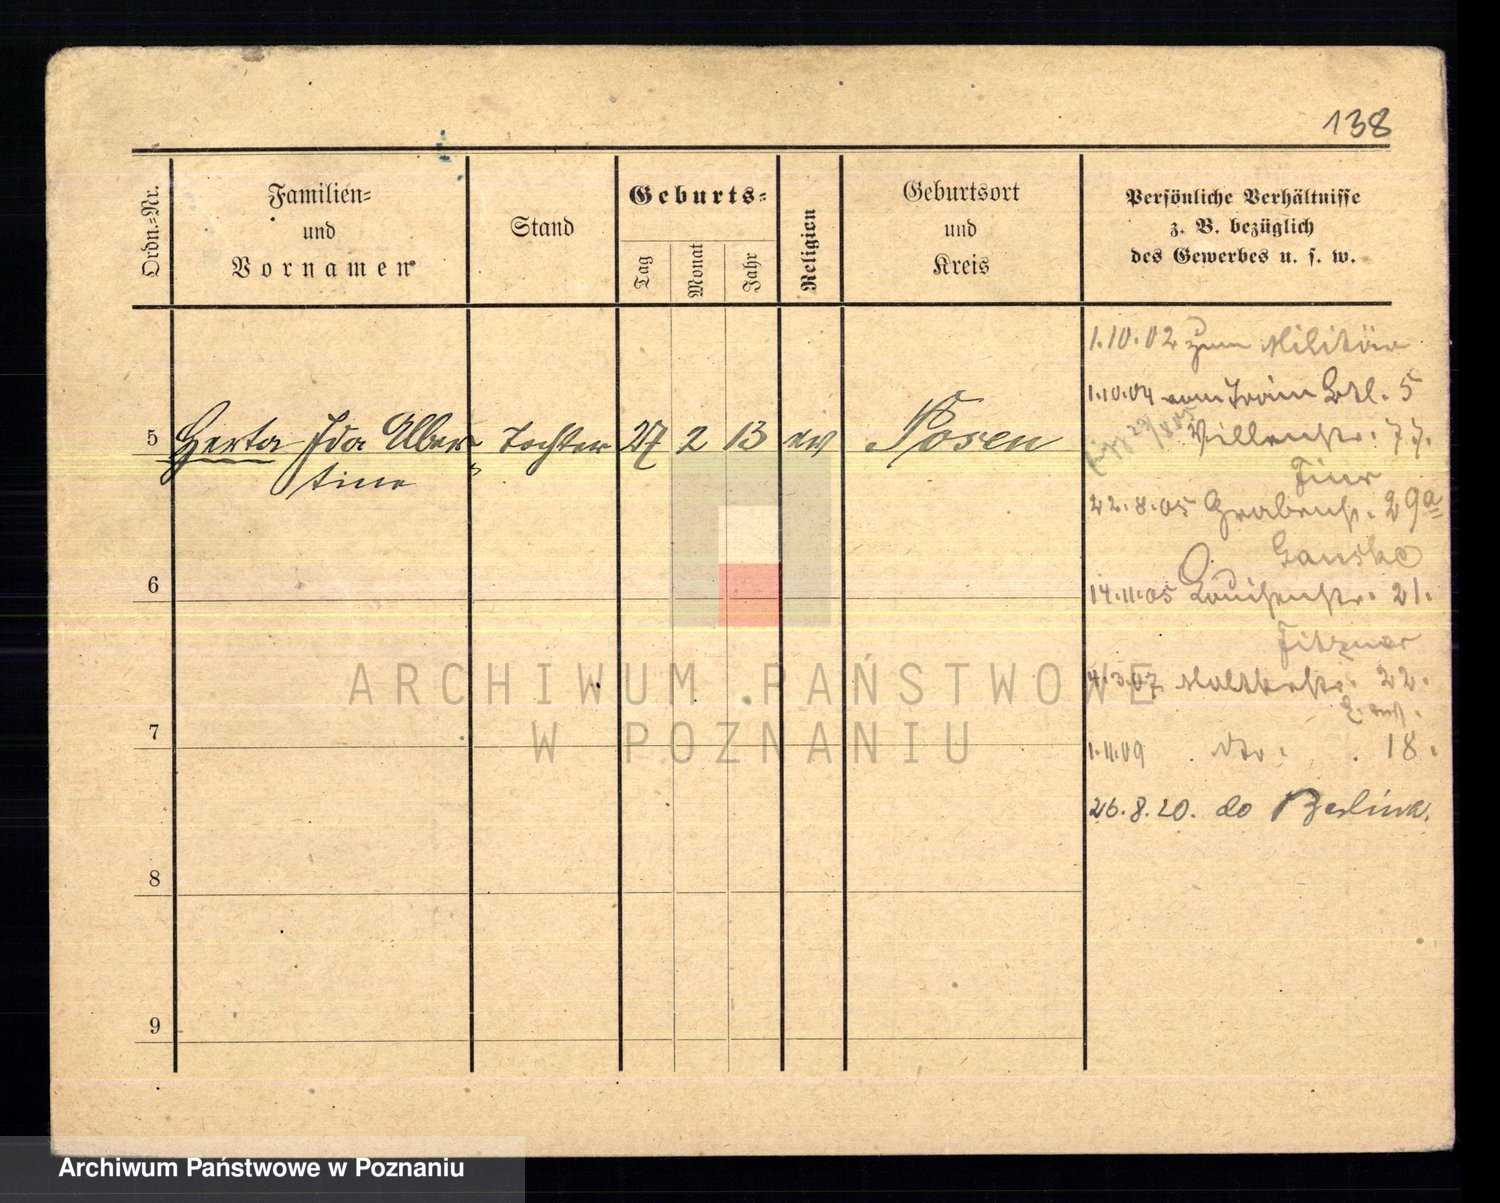 138
Ordn.-Nr.
Familien-
und
Vornamen
Stand
Geburts-
Tag
Monat
Jahr
Religion
Geburtsort
und
Kreis
Persönliche Verhältnisse
z. B. bezüglich
des Gewerbes u. s. w.
1.10.02 zum Militär
1.10.04 vom Train Btl. 5
Villenstr. 77.
22.8.05 Grabenstr. 29a
14.11.05 Louisenstr. 21.
Fitzner
4.3.07 Moltkestr. 22.
1.11.09 18.
26.8.20. do Berlina.
5 Herta Ida Alber- Tochter 27 2 13 ev Posen
tine
6
7
8
9
ARCHIWUM PAŃSTWOWE
W POZNANIU
Archiwum Państwowe w Poznaniu